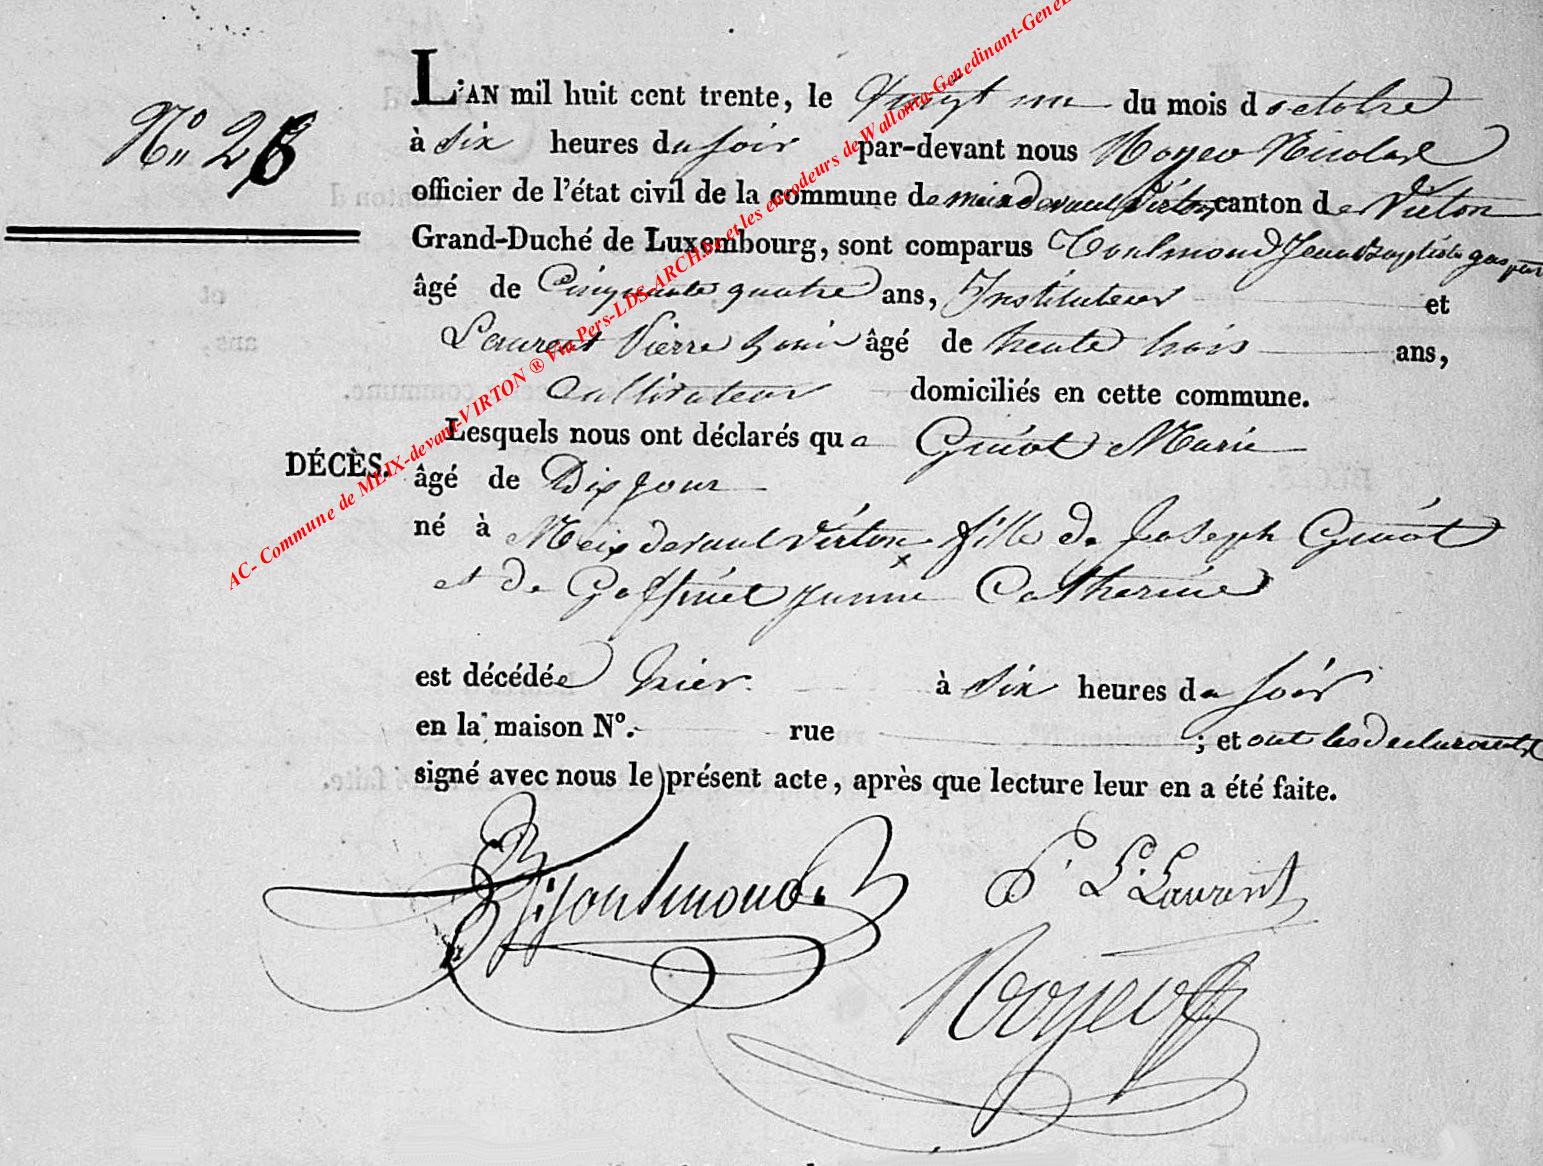 L'AN mil huit cent trente, le vingt un du mois d octobre
N° 26
à six heures du soir par-devant nous Noyer Nicolas
officier de l'état civil de la commune de meix devant Virton canton de Virton
Grand-Duché de Luxembourg, sont comparus Toulmond Jean Baptiste gaspar
âgé de Cinquante quatre ans, Instituteur et
Laurent Pierre âgé de trente trois ans,
Cultivateur domiciliés en cette commune.
Lesquels nous ont déclarés que Guiot Marie
DÉCÈS.
âgé de Dix jour
né à Meix devant Virton fille de Joseph Guiot
et de Goffinet Catherine
est décédée hier à six heures du soir
en la maison N°. rue ; et ont les declarants
signé avec nous le présent acte, après que lecture leur en a été faite.
Toulmond.
P. L. Laurent
Noyer
AC- Commune de MEIX-devant-VIRTON ® Via Pers-LDS-ARCH.be et les encodeurs de Wallonia-Genedinant-GeneB